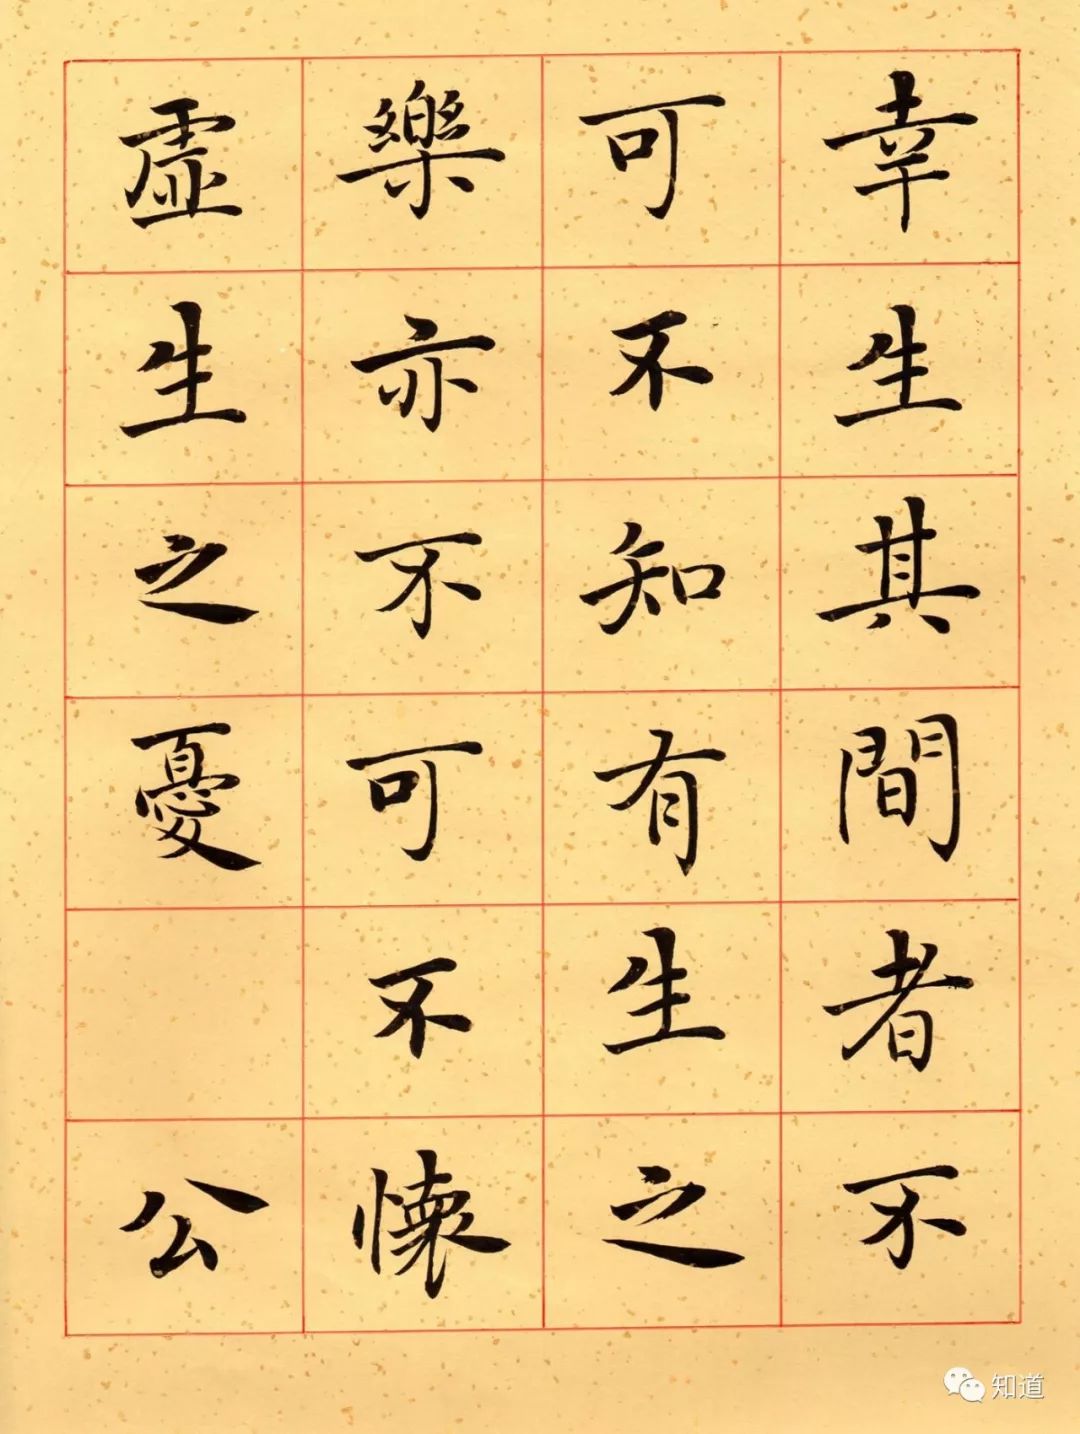 幸生其間者不
可不知有生之
樂亦不可不懷
虛生之憂 公
知道